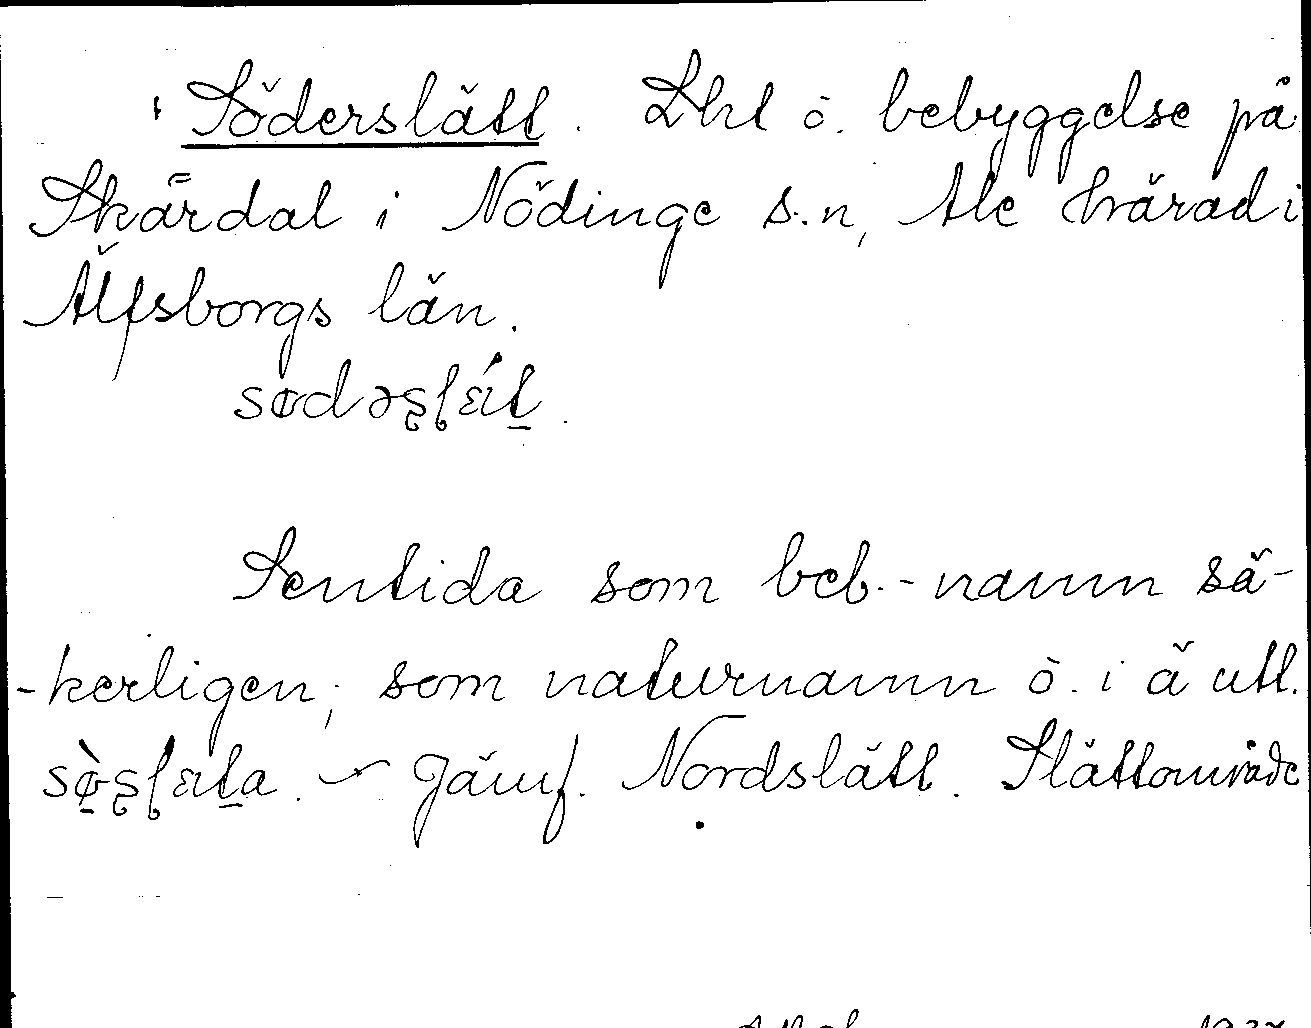 Söderslätt. Lht o. bebyggelse på
Skårdal i Nödinge s:n, Ale härad i
Älfsborgs län.
Sentida som beb.-namn sä-
-kerligen; som naturnamn o. i ä utt.
Jämf. Nordslätt. Slättområde